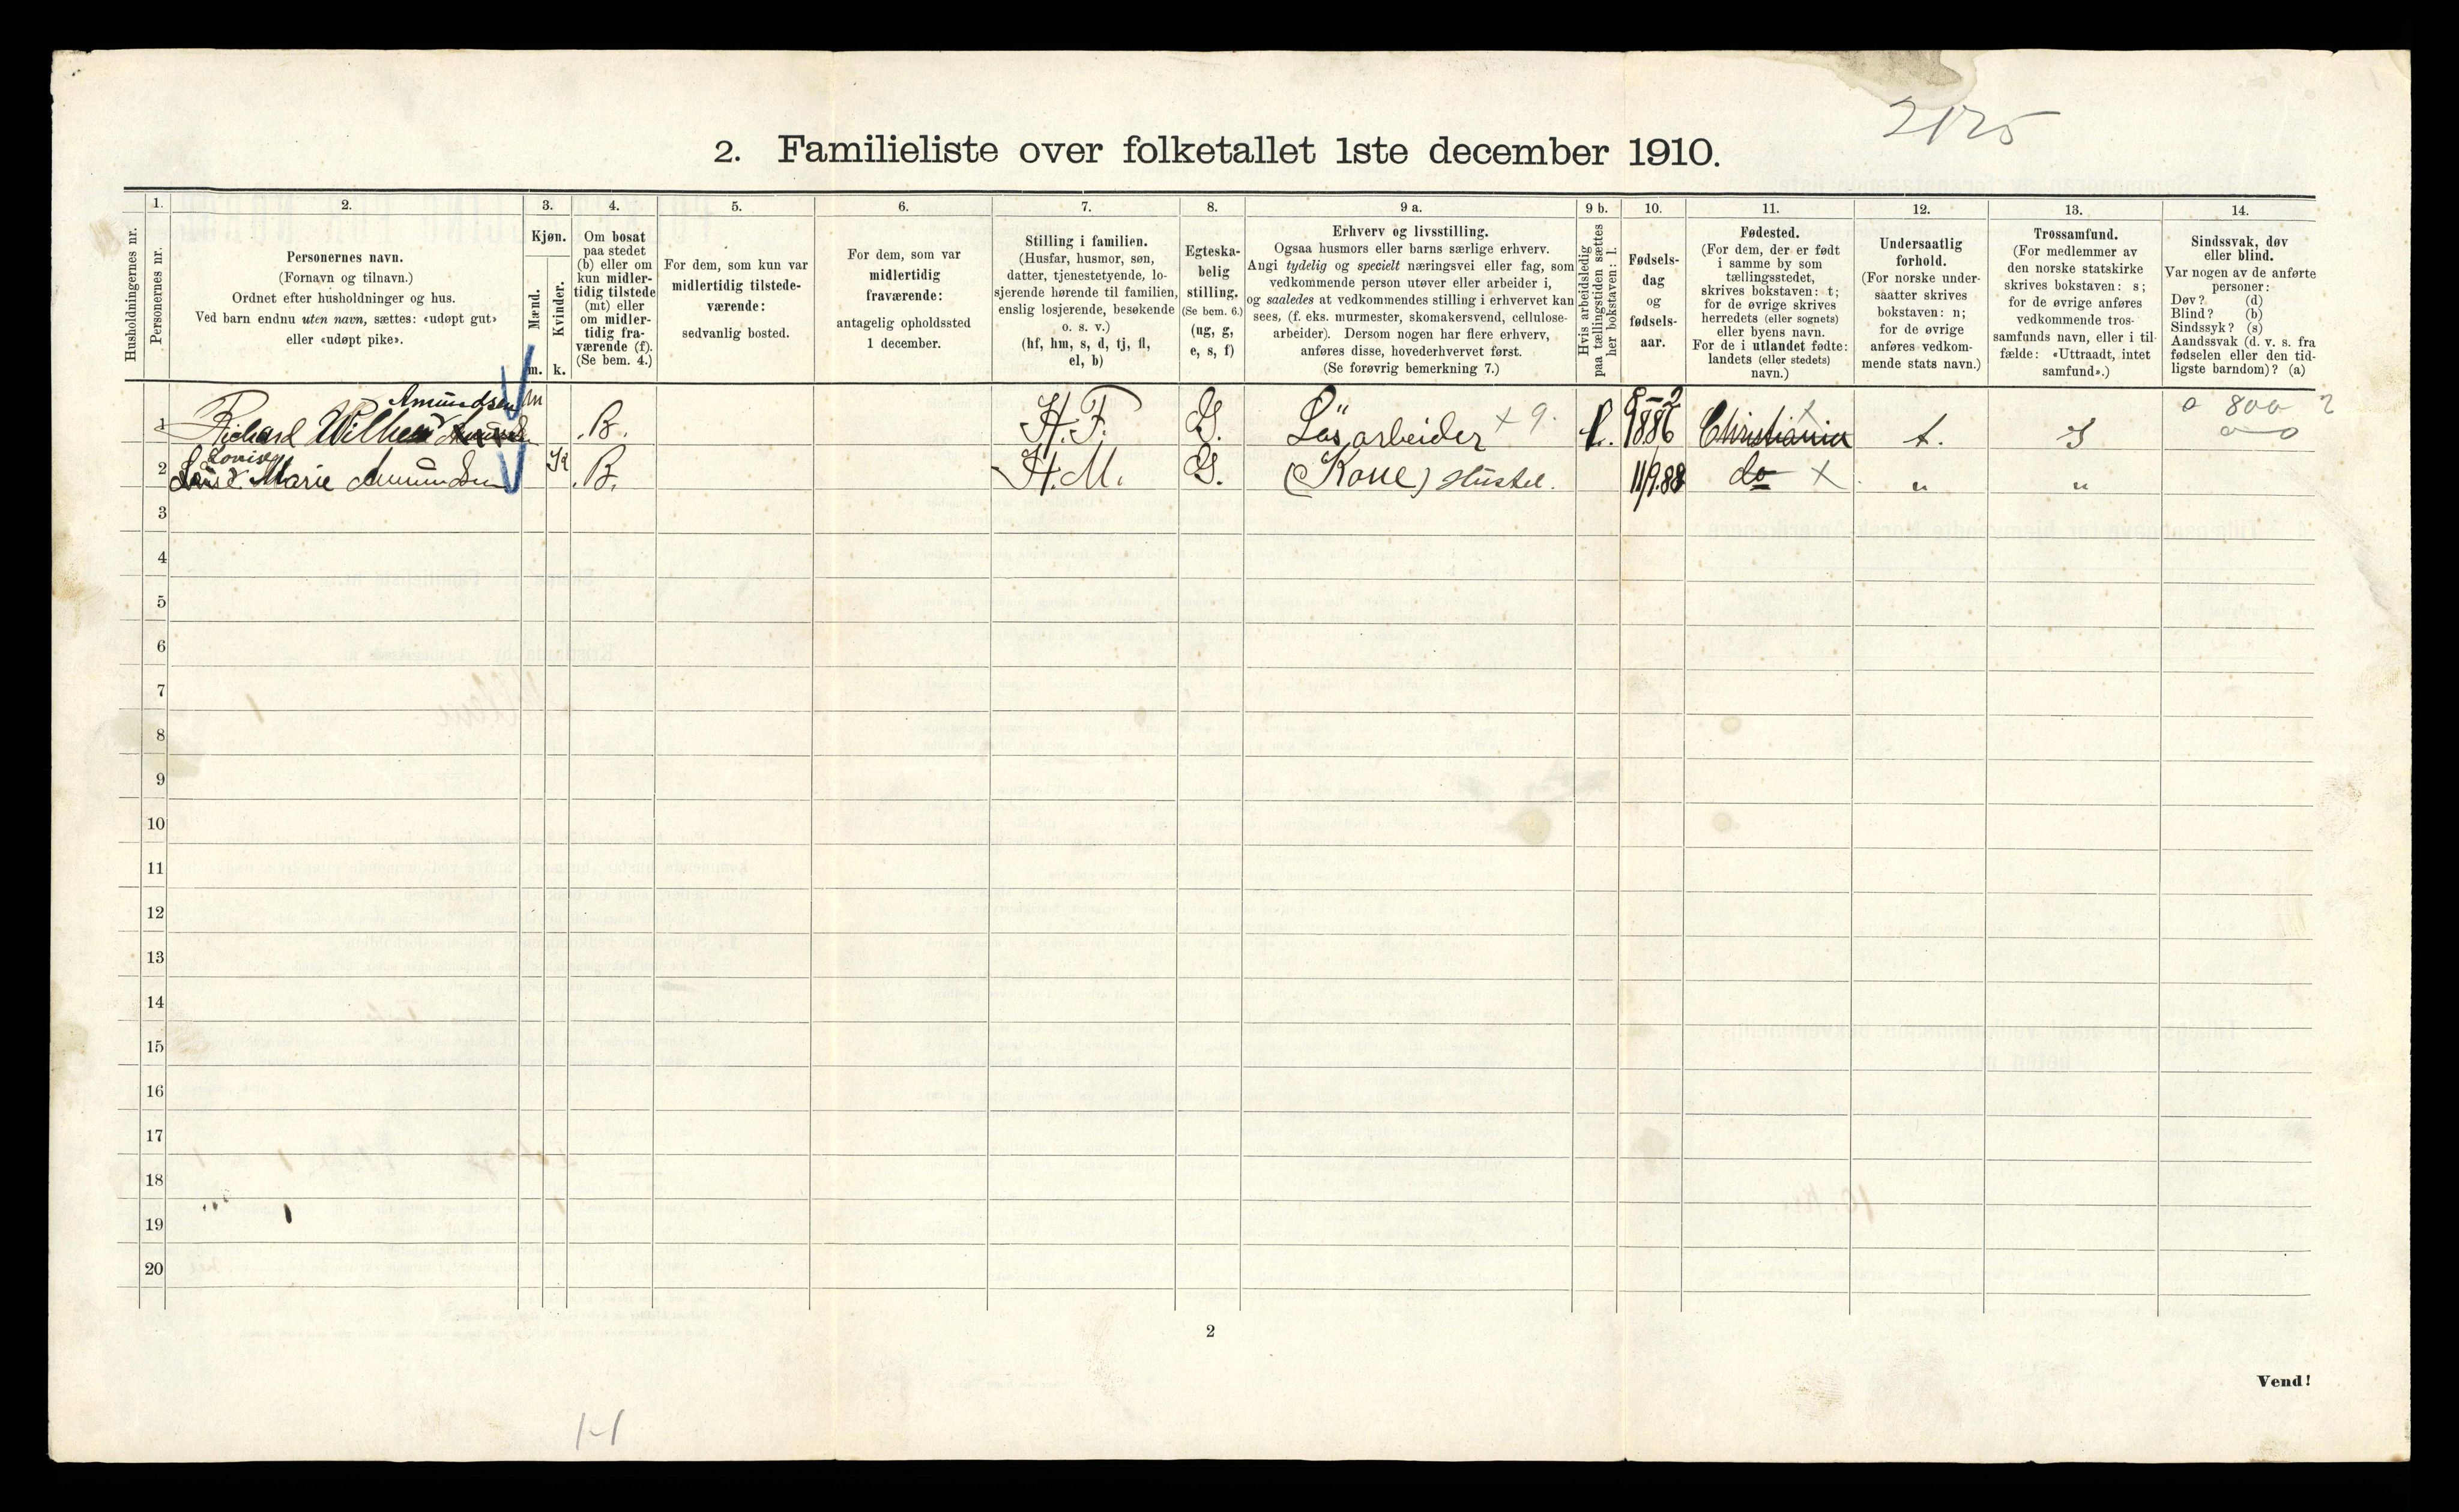 2125
2. Familieliste over folketallet 1ste december 1910.
Husholdningernes nr.
1.
Personernes nr.
2.
Personernes navn.
(Fornavn og tilnavn.)
Ordnet efter husholdninger og hus.
Ved barn endnu uten navn, sættes: «udøpt gut»
eller «udøpt pike».
3.
Kjøn.
Mænd.
Kvinder.
m.
k.
4.
Om bosat
paa stedet
(b) eller om
kun midler-
tidig tilstede
(mt) eller
om midler-
tidig fra-
værende (f).
(Se bem. 4.)
5.
For dem, som kun var
midlertidig tilstede-
værende:
sedvanlig bosted.
6.
For dem, som var
midlertidig
fraværende:
antagelig opholdssted
1 december.
7.
Stilling i familien.
(Husfar, husmor, søn,
datter, tjenestetyende, lo-
sjerende hørende til familien,
enslig losjerende, besøkende
o. s. v.)
(hf, hm, s, d, tj, fl,
el, b)
8.
Egteska-
belig
stilling.
(Se bem. 6.)
(ug, g,
e, s, f)
9 a.
Erhverv og livsstilling.
Ogsaa husmors eller barns særlige erhverv.
Angi tydelig og specielt næringsvei eller fag, som
vedkommende person utøver eller arbeider i,
og saaledes at vedkommendes stilling i erhvervet kan
sees, (f. eks. murmester, skomakersvend, cellulose-
arbeider). Dersom nogen har flere erhverv,
anføres disse, hovederhvervet først.
(Se forøvrig bemerkning 7.)
9 b.
Hvis arbeidsledig
paa tællingstiden sættes
her bokstaven: l.
10.
Fødsels-
dag
og
fødsels-
aar.
11.
Fødested.
(For dem, der er født
i samme by som
tællingsstedet,
skrives bokstaven: t;
for de øvrige skrives
herredets (eller sognets)
eller byens navn.
For de i utlandet fødte:
landets (eller stedets)
navn.)
12.
Undersaatlig
forhold.
(For norske under-
saatter skrives
bokstaven: n;
for de øvrige
anføres vedkom-
mende stats navn.)
13.
Trossamfund.
(For medlemmer av
den norske statskirke
skrives bokstaven: s;
for de øvrige anføres
vedkommende tros-
samfunds navn, eller i til-
fælde: «Uttraadt, intet
samfund».)
14.
Sindssvak, døv
eller blind.
Var nogen av de anførte
personer:
Døv? (d)
Blind? (b)
Sindssyk? (s)
Aandssvak (d. v. s. fra
fødselen eller den tid-
ligste barndom)? (a)
Amundsen
1 Richard m B. H.F. G. Løsarbeider + 9. l. 8-2 1886 Christiania t. S 0 800
Louise
2 Marie Amundsen K B. H.M. G. (Kone) Hustel. 11/9.88 do x " "
3
4
5
6
7
8
9
10
11
12
13
14
15
16
17
18
19
20
2
Vend!
1-1